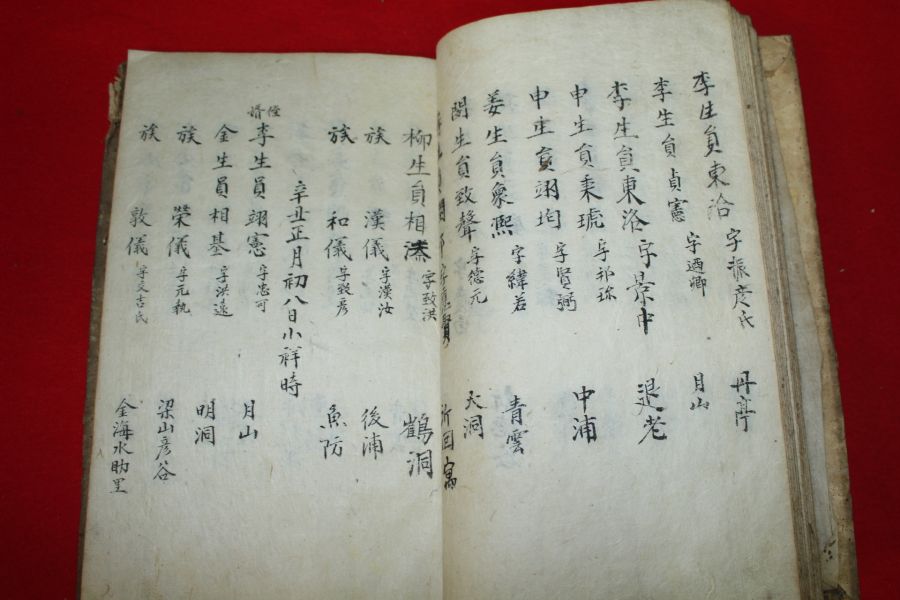 李生員東洽 字振彦氏 丹亭
李生員貞憲 字迺卿 月山
李生員東洛 字景中 退老
申生員秉琥 字邦珍 中浦
申生員翊均 字賢弼
姜生員象熙 字緯若 青雲
閔生員致聲 字德元 天洞
賢 所回寓
柳生員相 字致洪 鶴洞
族 漢儀 字漢汝 後浦
族 和儀 字致彦 魚防
辛丑正月初八日小祥時
侄婿
李生員翊憲 字忠可 月山
金生員相基 字洪遠 明洞
族 榮儀 字元執 梁山彦谷
族 敦儀 字文吉氏 金海水助里